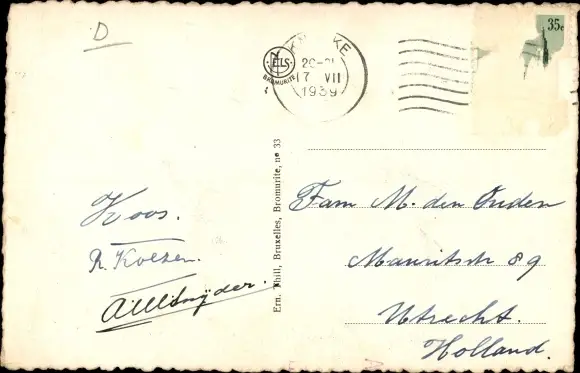 D
KNOKKE
20-21
17 VII
1939
NELS
BROMURITE
35c
Ern. Thill, Bruxelles, Bromurite, nº 33
Koos.
R. Koezen.
Fam M. den Ouden
Mauritsstr 89
Utrecht.
Holland.